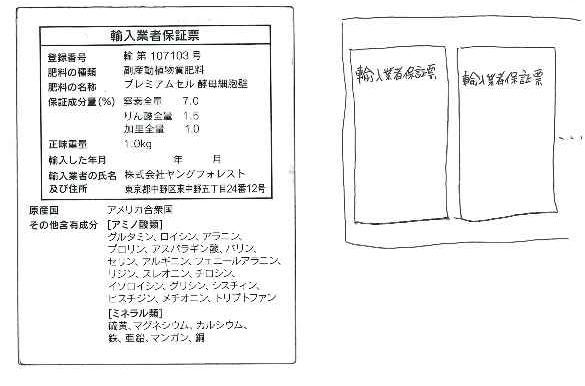 輸入業者保証票
登録番号 輸 第 107103 号
肥料の種類 副産動植物質肥料
肥料の名称 プレミアムセル 酵母細胞壁
保証成分量(%) 窒素全量 7.0
りん酸全量 1.5
加里全量 1.0
正味重量 1.0kg
輸入した年月 年 月
輸入業者の氏名 株式会社ヤングフォレスト
及び住所 東京都中野区東中野五丁目24番12号
原産国 アメリカ合衆国
その他含有成分 [アミノ酸類]
グルタミン、ロイシン、アラニン、
プロリン、アスパラギン酸、バリン、
セリン、アルギニン、フェニールアラニン、
リジン、スレオニン、チロシン、
イソロイシン、グリシン、シスチィン、
ヒスチジン、メチオニン、トリプトファン
[ミネラル類]
硫黄、マグネシウム、カルシウム、
鉄、亜鉛、マンガン、銅
輸入業者保証票
輸入業者保証票